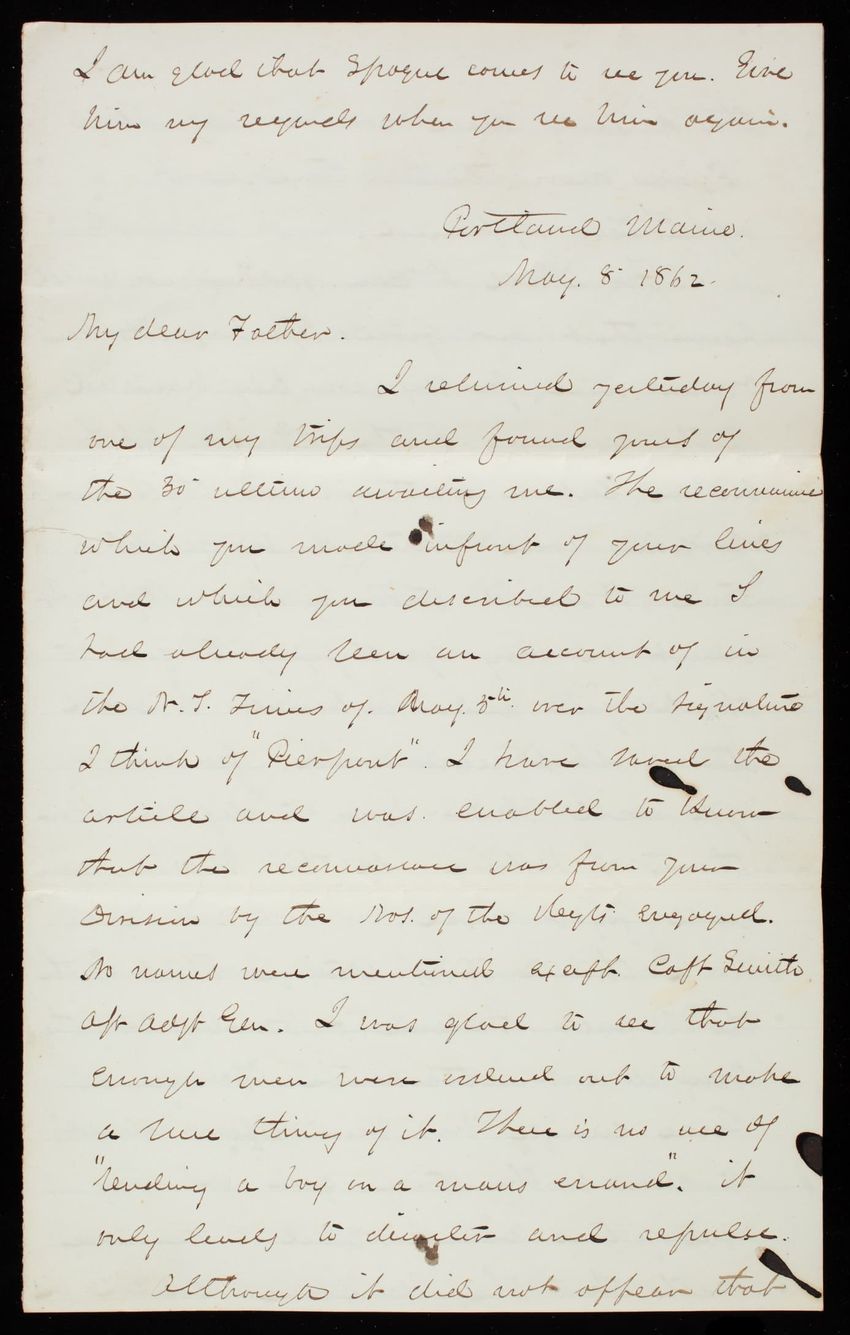 I am glad that Sprague comes to see you. Give
him my regards when you see him again.
Portland Maine.
May. 8 1862.
My dear Father.
I returned yesterday from
one of my trips and found yours of
the 30 ultimo awaiting me. The reconnaissance
which you made infront of your lines
and which you described to me I
had already seen an account of in
the N.Y. Times of. May. 5th. over the signature
I think of "Pierpont". I have saved the
article and was. enabled to know
that the reconnaissance was from your
Division by the Nos. of the Regts engaged.
No names were mentioned except. Capt Smith
Apt Adjt Gen. I was glad to see that
enough men were ordered out to make
a sure thing of it. There is no use of
"sending a boy on a mans errand". it
only leads to disaster and repulse.
Although it did not appear that